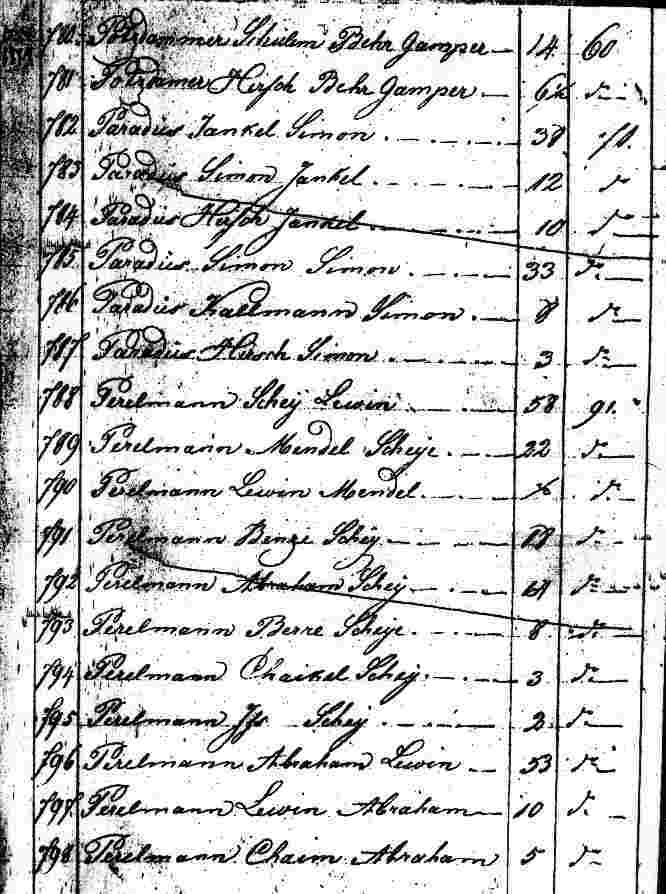 780. Potzdammer Schulem Behr Gamper 14 60
781 Potzdamer Hirsch Behr Gamper do
782 Paradiis Jankel Simon 38
783 Paradiis Simon Jankel 12 do
784 Paradiis Hirsch Jankel 10 do
785 Paradiis Simon Simon 33 do
786 Paradiis Kallmann Simon 8 do
787 Paradiis Hirsch Simon 3 do
788 Perelmann Schey Lewin 58 91.
789 Perelmann Mendel Scheye 22 do
790 Perelmann Lewin Mendel do
791 Perelmann Benze Schey do
792 Perelmann Abraham Schey 14 do
793 Perelmann Berre Scheye 8 do
794 Perelmann Chaikel Schey 3 do
795 Perelmann Schey 2 do
796 Perelmann Abraham Lewin 53 do
797 Perelmann Lewin Abraham 10 do
798 Perelmann Chaim Abraham 5 do